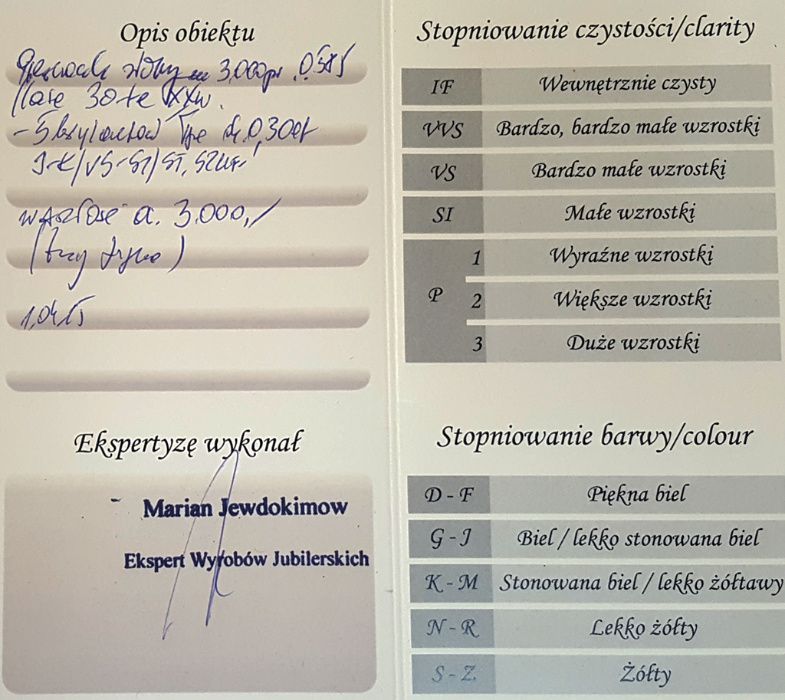 Opis obiektu
złoty 3.000 pr. 0,585
30
- 5 brylantów 0,30ct
J-K/VS-SI/
wartość 3.000,/
(trzy )
1.04.15
Ekspertyzę wykonał
Marian Jewdokimow
Ekspert Wyrobów Jubilerskich
Stopniowanie czystości/clarity
IF Wewnętrznie czysty
VVS Bardzo, bardzo małe wzrostki
VS Bardzo małe wzrostki
SI Małe wzrostki
1 Wyraźne wzrostki
P 2 Większe wzrostki
3 Duże wzrostki
Stopniowanie barwy/colour
D - F Piękna biel
G - J Biel / lekko stonowana biel
K - M Stonowana biel / lekko żółtawy
N - R Lekko żółty
S - Z Żółty